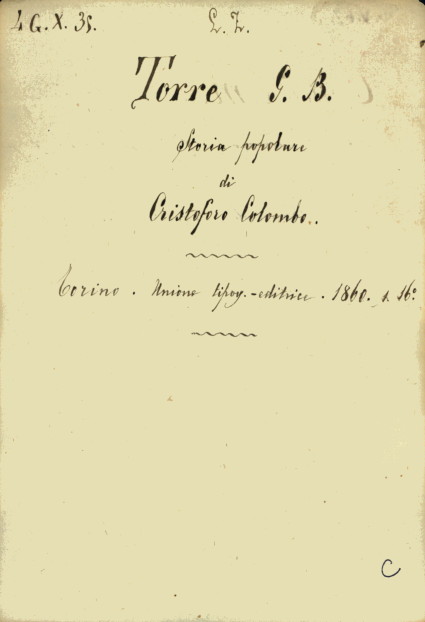 4 G. X. 35. L. Z.
Torre G. B.
Storia popolare
di
Cristoforo Colombo.
Torino. Unione tipog.-editrice. 1860. s. 16°.
C